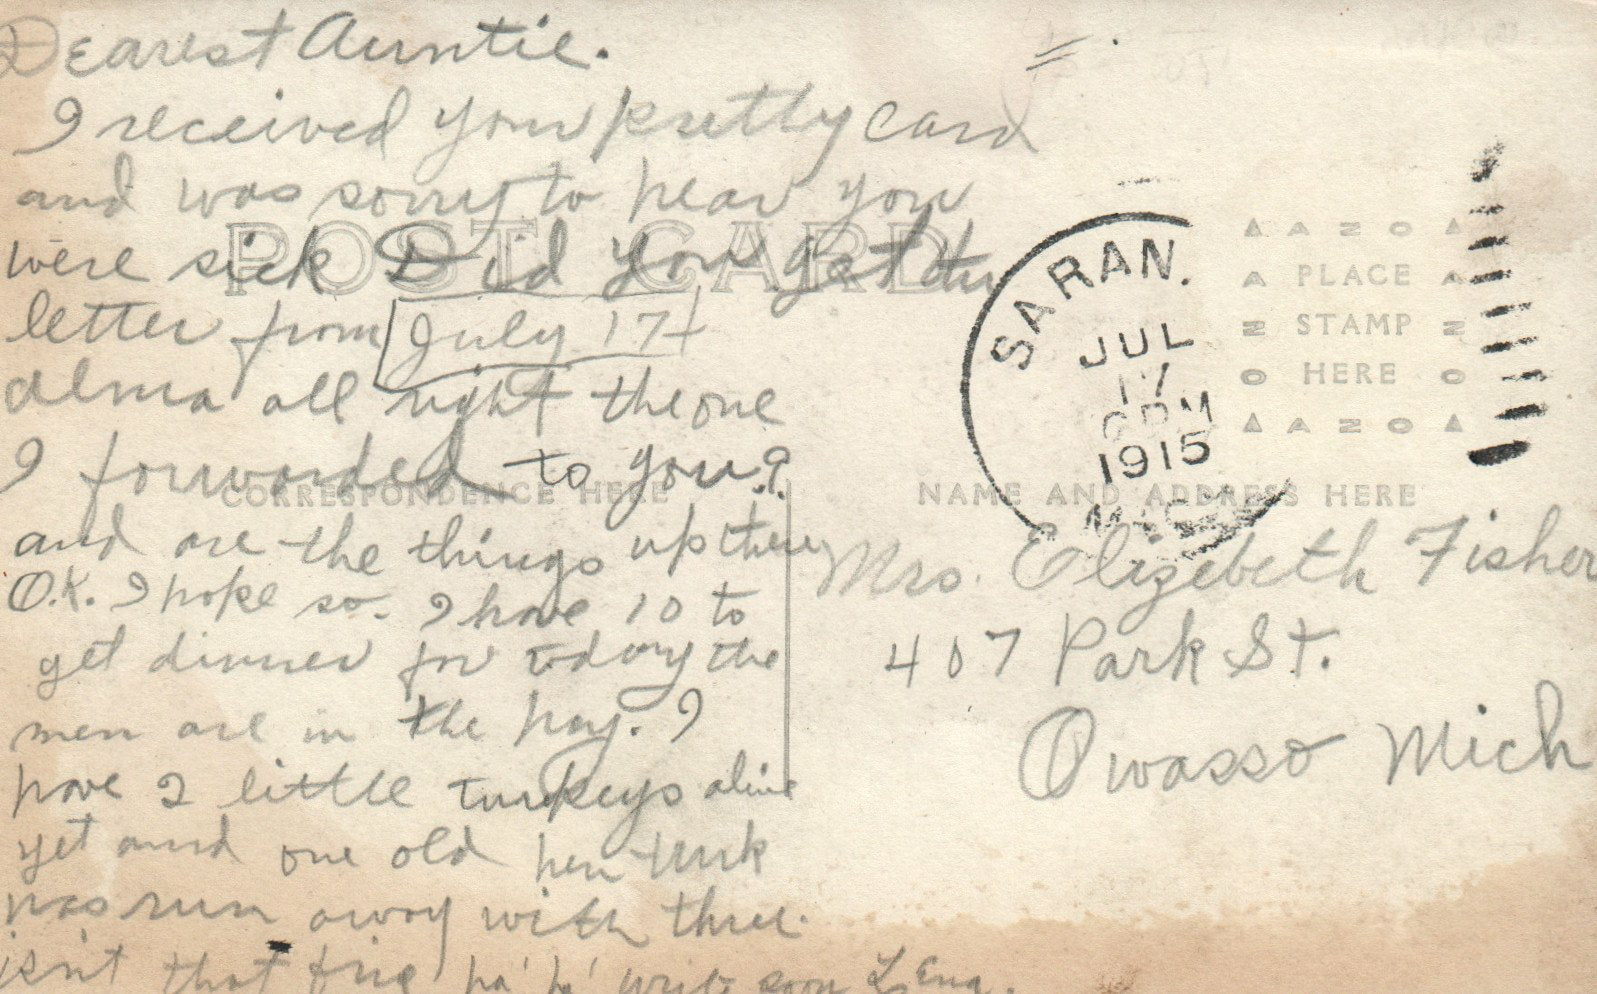 Dearest Auntie.
I received your pretty card
and was sorry to hear you
were sick Did you get the
letter from July 17
Alma all right the one
I forwarded to you?
and are the things up there
O.K. I hope so. I have 10 to
get dinner for today the
men are in the hay. I
have 2 little turkeys alive
yet and one old hen turk
has run away with three.
isn't that fine ha' ha' write soon Lena.
POST CARD
CORRESPONDENCE HERE
SARAN.
JUL
17
6 PM
1915
MICH.
AZO
PLACE
STAMP
HERE
AZO
NAME AND ADDRESS HERE
Mrs. Elizebeth Fisher
407 Park St.
Owasso Mich